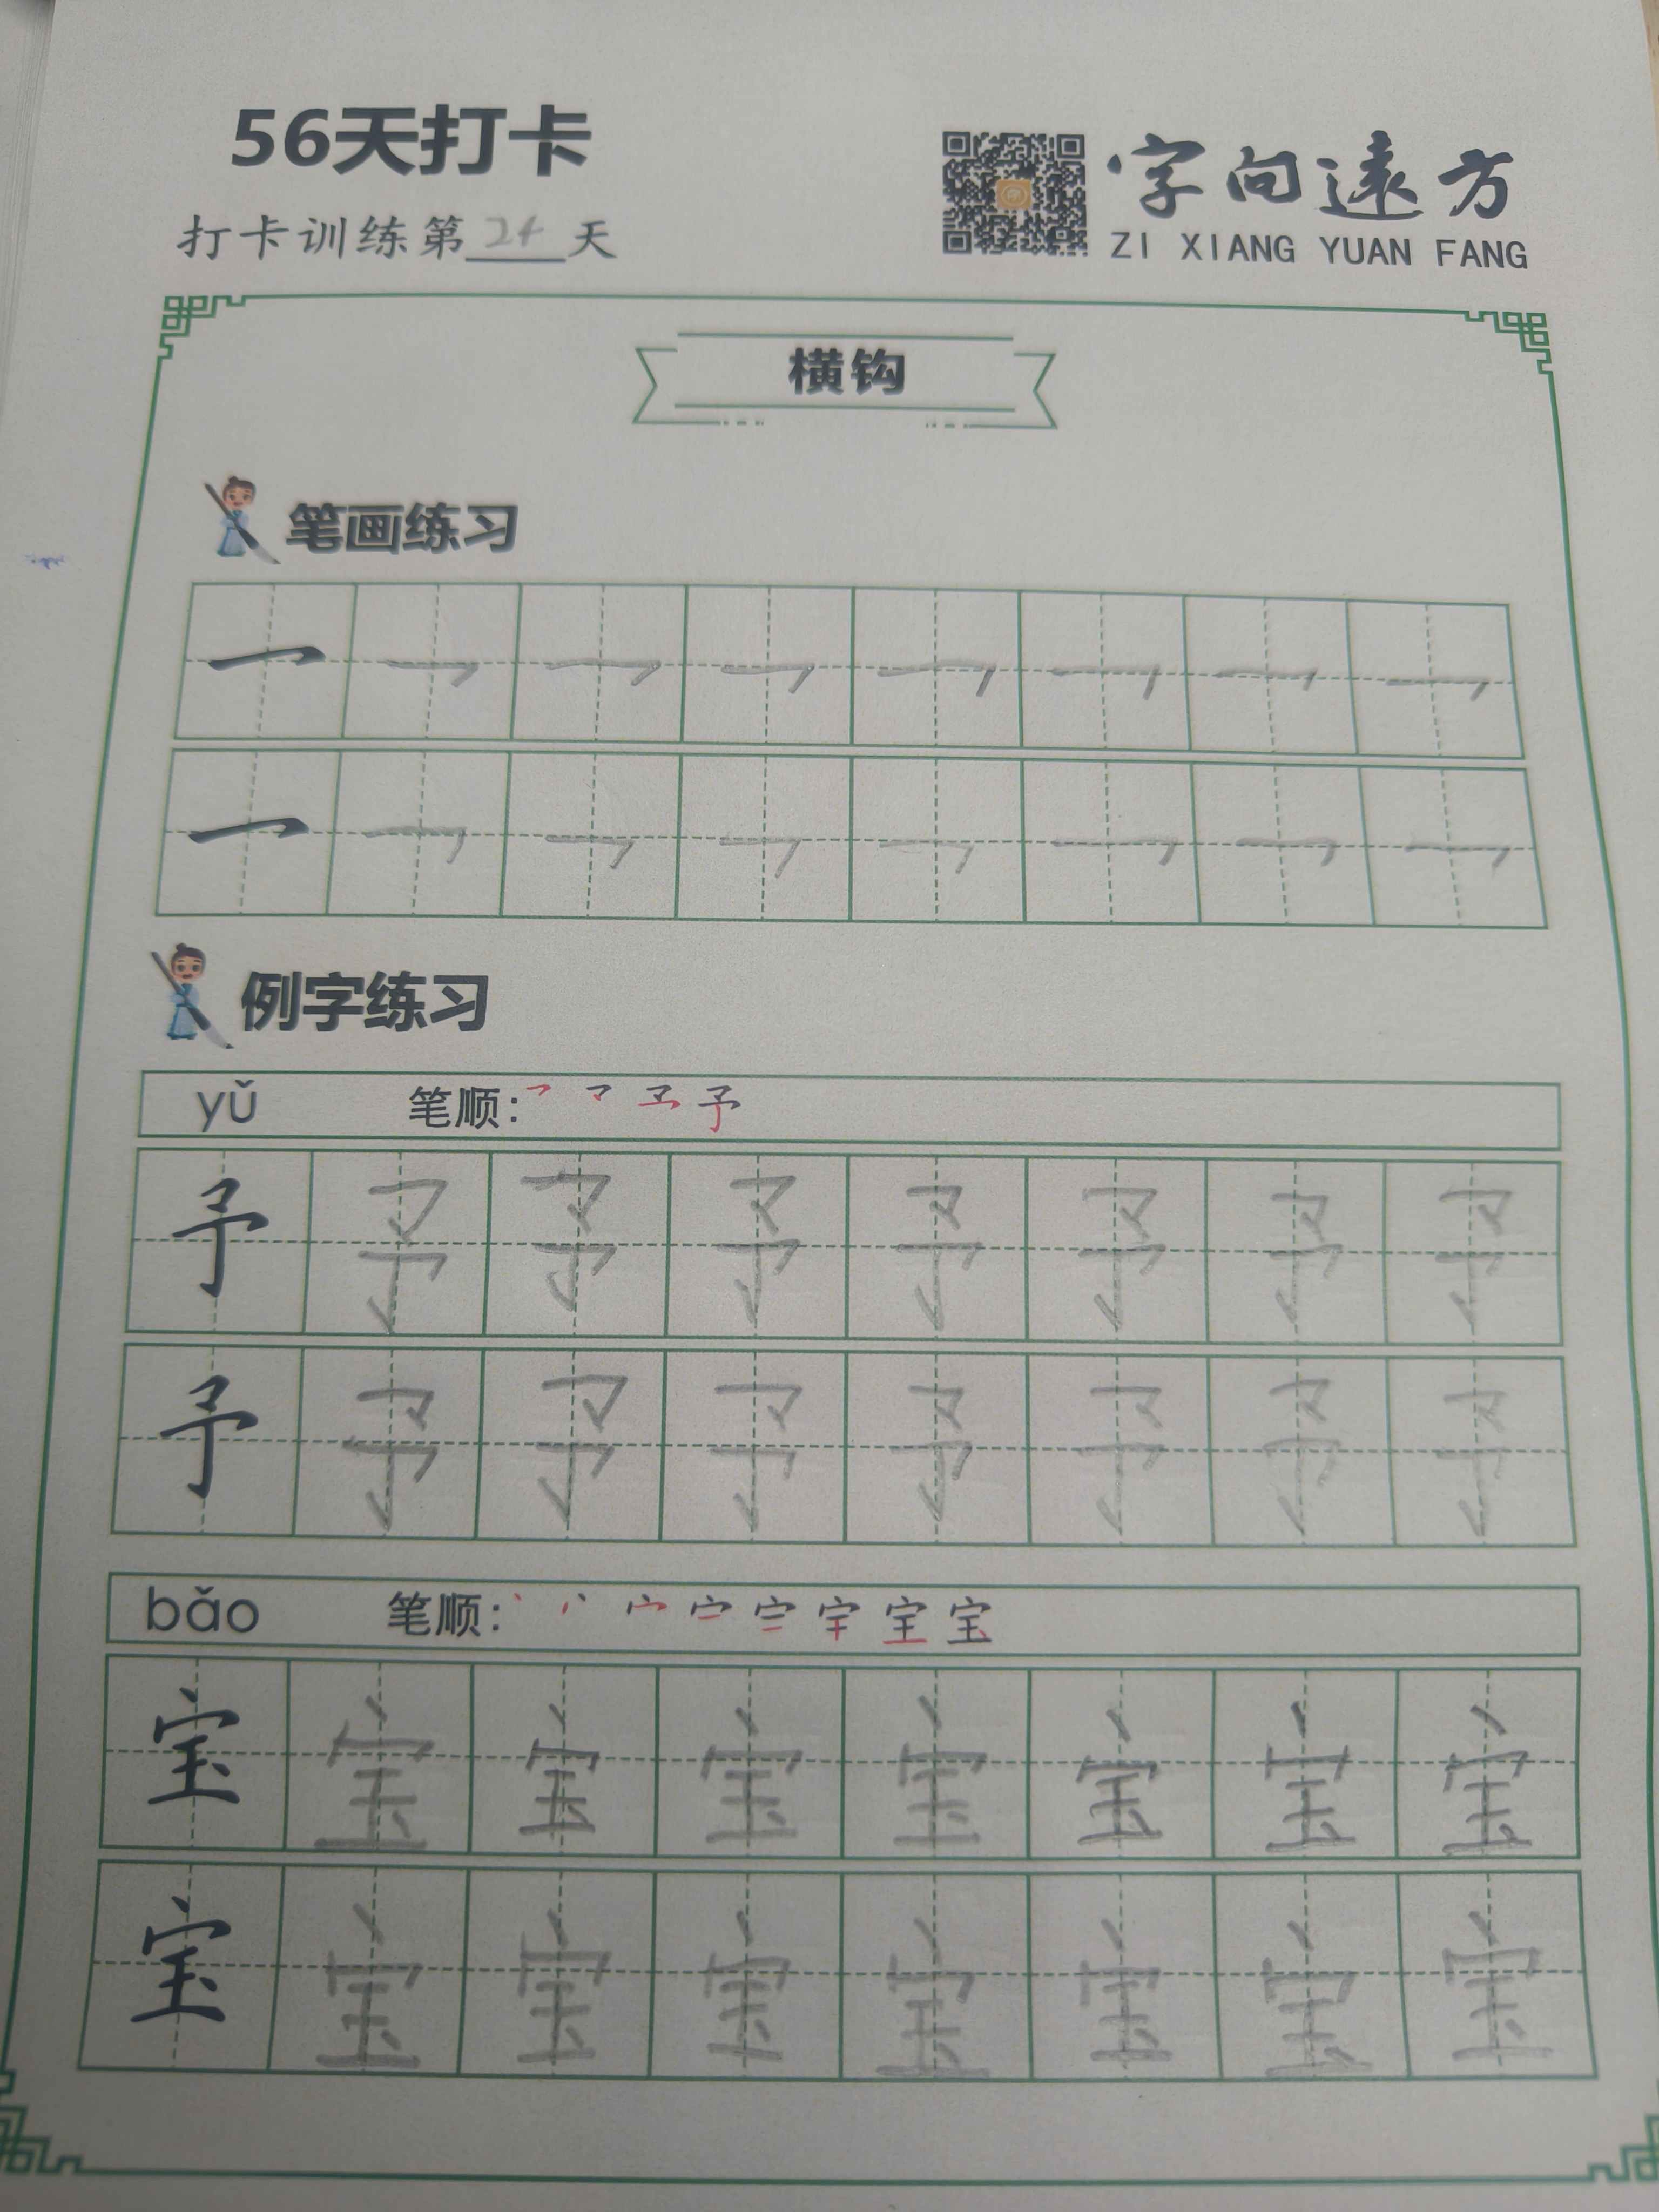 56天打卡
字向遠方
打卡训练第24天
ZI XIANG YUAN FANG
横钩
笔画练习
㇖ ㇖ ㇖ ㇖ ㇖ ㇖ ㇖ ㇖
㇖ ㇖ ㇖ ㇖ ㇖ ㇖ ㇖ ㇖
例字练习
yǔ 笔顺: 予
予 予 予 予 予 予 予 予
予 予 予 予 予 予 予 予
bǎo 笔顺: 宝
宝 宝 宝 宝 宝 宝 宝 宝
宝 宝 宝 宝 宝 宝 宝 宝